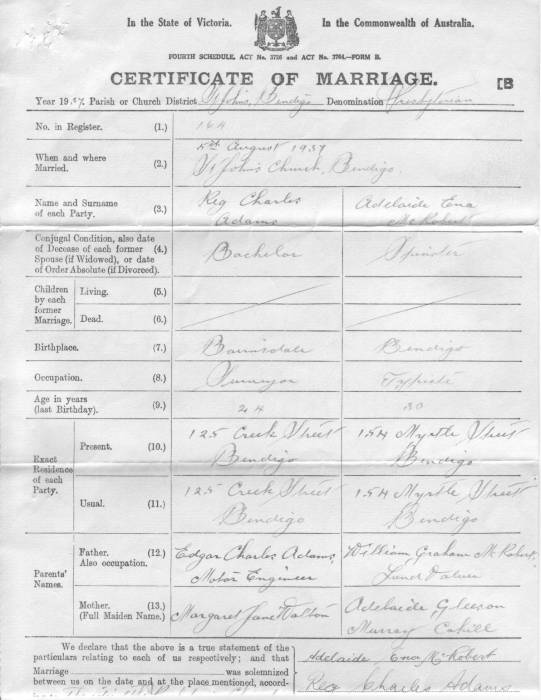 In the State of Victoria. In the Commonwealth of Australia.
FOURTH SCHEDULE, ACT No. 3726 and ACT No. 3764.—FORM B.
CERTIFICATE OF MARRIAGE. [B
Year 1937 Parish or Church District St Johns, Bendigo Denomination Presbyterian
No. in Register. (1.) 164
When and where Married. (2.) August 1937
St John's Church, Bendigo.
Name and Surname of each Party. (3.) Reg Charles Adelaide Ena
Adams McRobert
Conjugal Condition, also date
of Decease of each former (4.) Bachelor Spinster
Spouse (if Widowed), or date
of Order Absolute (if Divorced).
Children by each former Marriage.
Living. (5.)
Dead. (6.)
Birthplace. (7.) Bairnsdale Bendigo
Occupation. (8.) Surveyor Typiste
Age in years
(last Birthday). (9.) 24 30
Exact Residence of each Party.
Present. (10.) 125 Creek Street 154 Myrtle Street
Bendigo Bendigo
Usual. (11.) 125 Creek Street 154 Myrtle Street
Bendigo Bendigo
Parents' Names.
Father. (12.) Edgar Charles Adams, William Graham McRobert,
Also occupation. Motor Engineer Land Valuer
Mother. (13.) Margaret Jane Walton Adelaide Gleeson
(Full Maiden Name). Murray Cahill
We declare that the above is a true statement of the
particulars relating to each of us respectively; and that
Marriage was solemnized
between us on the date and at the place mentioned, accord-
Adelaide Ena McRobert
Reg Charles Adams